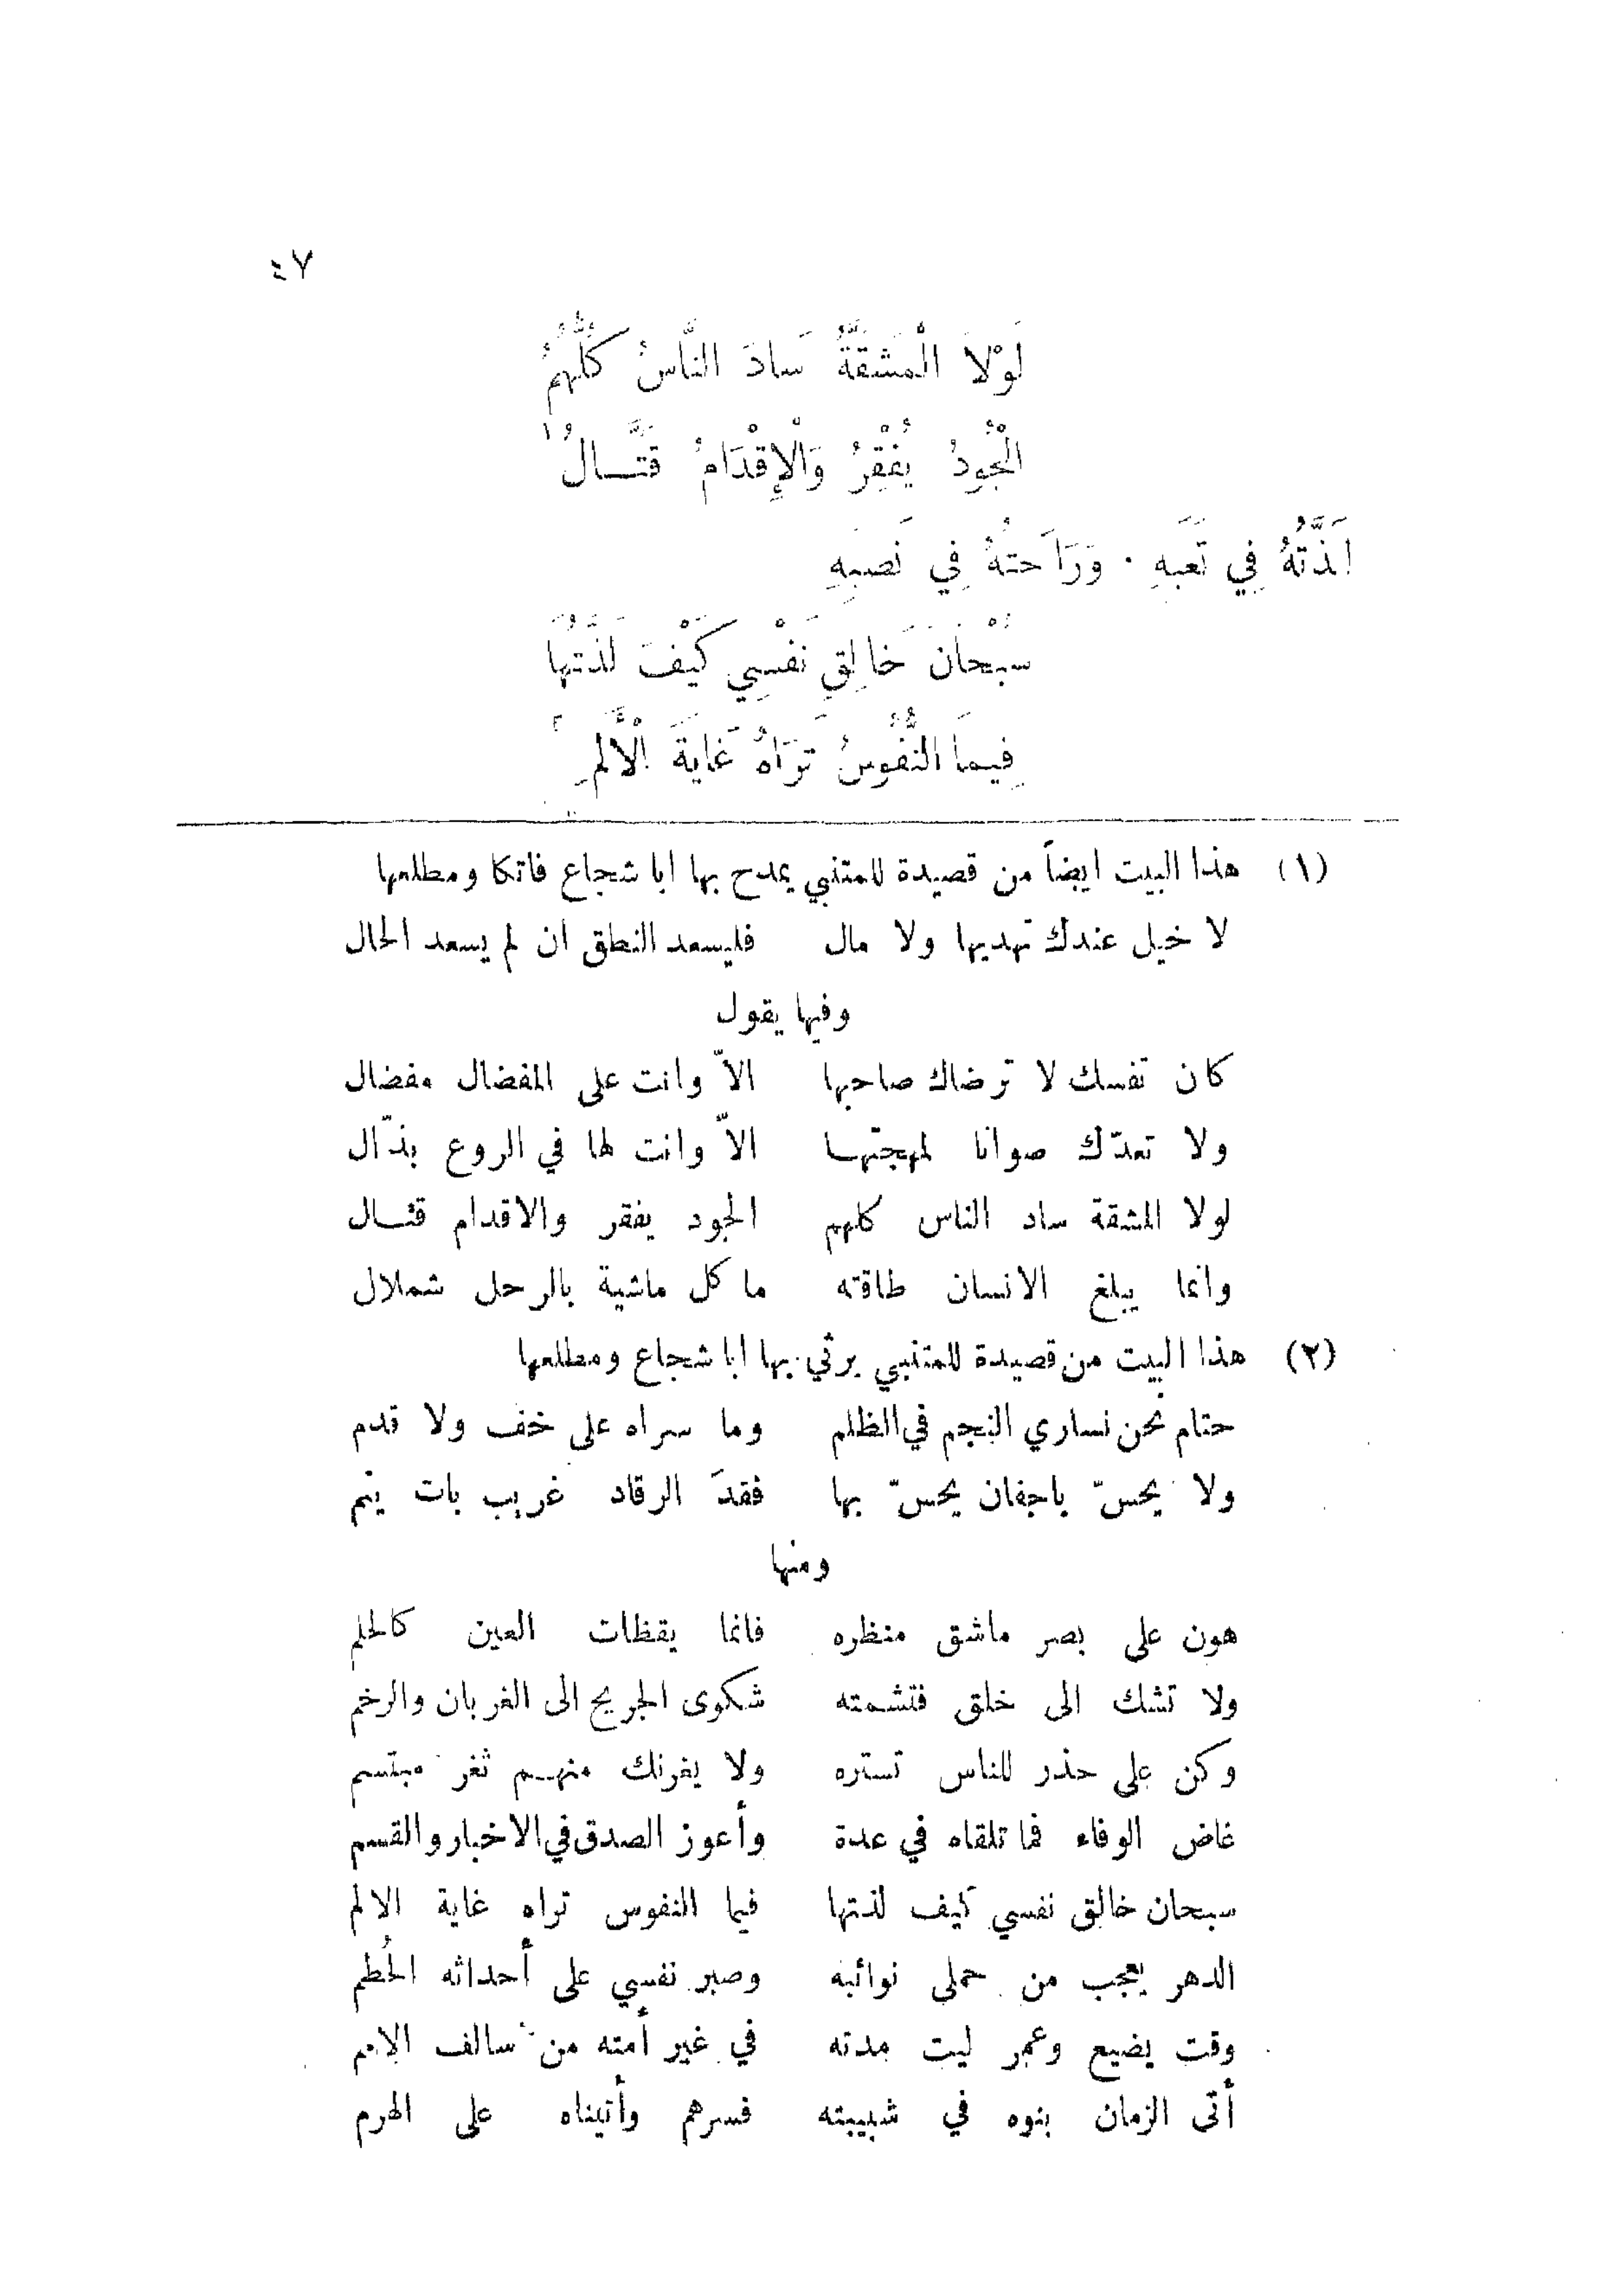 ٤٧
لَوْلَا الْمَشَقَّةُ سَادَ النَّاسُ كُلُّهُمُ
الْجُودُ يُفْقِرُ وَالْإِقْدَامُ قَتَّالُ ١
لَذَّتُهُ فِي تَعَبِهِ . وَرَاحَتُهُ فِي نَصَبِهِ
سُبْحَانَ خَالِقِ نَفْسِي كَيْفَ لَذَّتُهَا
فِيمَا النُّفُوسُ تَرَاهُ غَايَةَ الْأَلَمِ ٢
(١) هذا البيت ايضاً من قصيدة للمتنبي يمدح بها ابا شجاع فاتكا ومطلعها
لا خيل عندك تهديها ولا مال فليسعد النطق ان لم يسعد الحال
وفيها يقول
كان نفسك لا ترضاك صاحبها الاّ وانت على المفضال مفضال
ولا تعدّك صوانا لمهجتها الاّ وانت لها في الروع بذّال
لولا المشقة ساد الناس كلهم الجود يفقر والاقدام قتال
وانما يبلغ الانسان طاقته ما كل ماشية بالرحل شملال
(٢) هذا البيت من قصيدة للمتنبي يرثي بها ابا شجاع ومطلعها
حتام نحن نساري النجم في الظلم وما سراه على خف ولا قدم
ولا يحسّ باجفان يحسّ بها فقدَ الرقاد غريب بات ينم
ومنها
هون على بصر ماشق منظره فانما يقظات العين كالحلم
ولا تشك الى خلق فتشمته شكوى الجريح الى الغربان والرخم
وكن على حذر للناس تستره ولا يغرنك منهم ثغر مبتسم
غاض الوفاء فما تلقاه في عدة وأعوز الصدق في الاخبار والقسم
سبحان خالق نفسي كيف لذتها فيما النفوس تراه غاية الالم
الدهر يعجب من حملي نوائبه وصبر نفسي على أحداثه الحُطم
وقت يضيع وعمر ليت مدته في غير أمته من سالف الامم
أتى الزمان بنوه في شبيبته فسرهم وأتيناه على الهرم